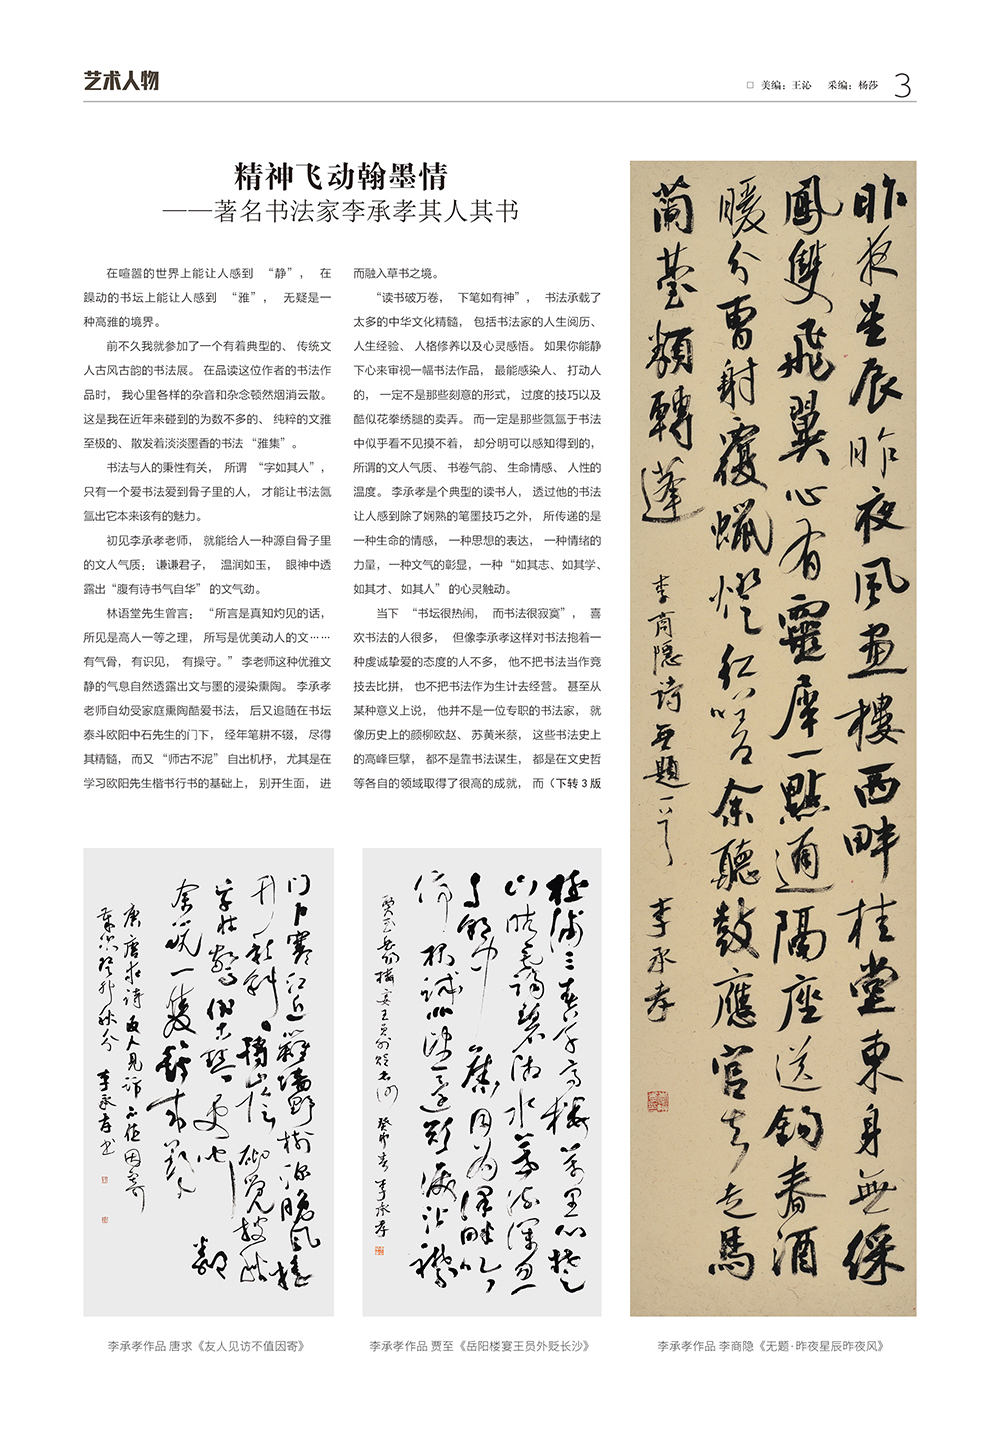 艺术人物
□ 美编：王沁 采编：杨莎 3
精神飞动翰墨情
——著名书法家李承孝其人其书
在喧嚣的世界上能让人感到 “静”， 在
躁动的书坛上能让人感到 “雅”， 无疑是一
种高雅的境界。
前不久我就参加了一个有着典型的、 传统文
人古风古韵的书法展。 在品读这位作者的书法作
品时， 我心里各样的杂音和杂念顿然烟消云散。
这是我在近年来碰到的为数不多的、 纯粹的文雅
至极的、 散发着淡淡墨香的书法 “雅集”。
书法与人的秉性有关， 所谓 “字如其人”，
只有一个爱书法爱到骨子里的人， 才能让书法氤
氲出它本来该有的魅力。
初见李承孝老师， 就能给人一种源自骨子里
的文人气质； 谦谦君子， 温润如玉， 眼神中透
露出“腹有诗书气自华” 的文气劲。
林语堂先生曾言； “所言是真知灼见的话，
所见是高人一等之理， 所写是优美动人的文⋯⋯
有气骨， 有识见， 有操守。” 李老师这种优雅文
静的气息自然透露出文与墨的浸染熏陶。 李承孝
老师自幼受家庭熏陶酷爱书法， 后又追随在书坛
泰斗欧阳中石先生的门下， 经年笔耕不辍， 尽得
其精髓， 而又 “师古不泥” 自出机杼， 尤其是在
学习欧阳先生楷书行书的基础上， 别开生面， 进
而融入草书之境。
“读书破万卷， 下笔如有神”， 书法承载了
太多的中华文化精髓， 包括书法家的人生阅历、
人生经验、 人格修养以及心灵感悟。 如果你能静
下心来审视一幅书法作品， 最能感染人、 打动人
的， 一定不是那些刻意的形式， 过度的技巧以及
酷似花拳绣腿的卖弄。 而一定是那些氤氲于书法
中似乎看不见摸不着， 却分明可以感知得到的，
所谓的文人气质、 书卷气韵、 生命情感、 人性的
温度。 李承孝是个典型的读书人， 透过他的书法
让人感到除了娴熟的笔墨技巧之外， 所传递的是
一种生命的情感， 一种思想的表达， 一种情绪的
力量，一种文气的彰显，一种 “如其志、如其学、
如其才、 如其人” 的心灵触动。
当下 “书坛很热闹， 而书法很寂寞”， 喜
欢书法的人很多， 但像李承孝这样对书法抱着一
种虔诚挚爱的态度的人不多， 他不把书法当作竞
技去比拼， 也不把书法作为生计去经营。 甚至从
某种意义上说， 他并不是一位专职的书法家， 就
像历史上的颜柳欧赵、 苏黄米蔡， 这些书法史上
的高峰巨擘， 都不是靠书法谋生， 都是在文史哲
等各自的领域取得了很高的成就， 而（下转 3 版
昨夜星辰昨夜风画樓西畔桂堂東身無綵
鳳雙飛翼心有靈犀一點通隔座送鉤春酒
暖分曹射覆蠟燈红嗟余聽鼓應官去走馬
蘭臺類轉蓬
李商隱诗無题一首
李承孝
李承孝作品 唐求《友人见访不值因寄》
李承孝作品 贾至《岳阳楼宴王员外贬长沙》
李承孝作品 李商隐《无题·昨夜星辰昨夜风》